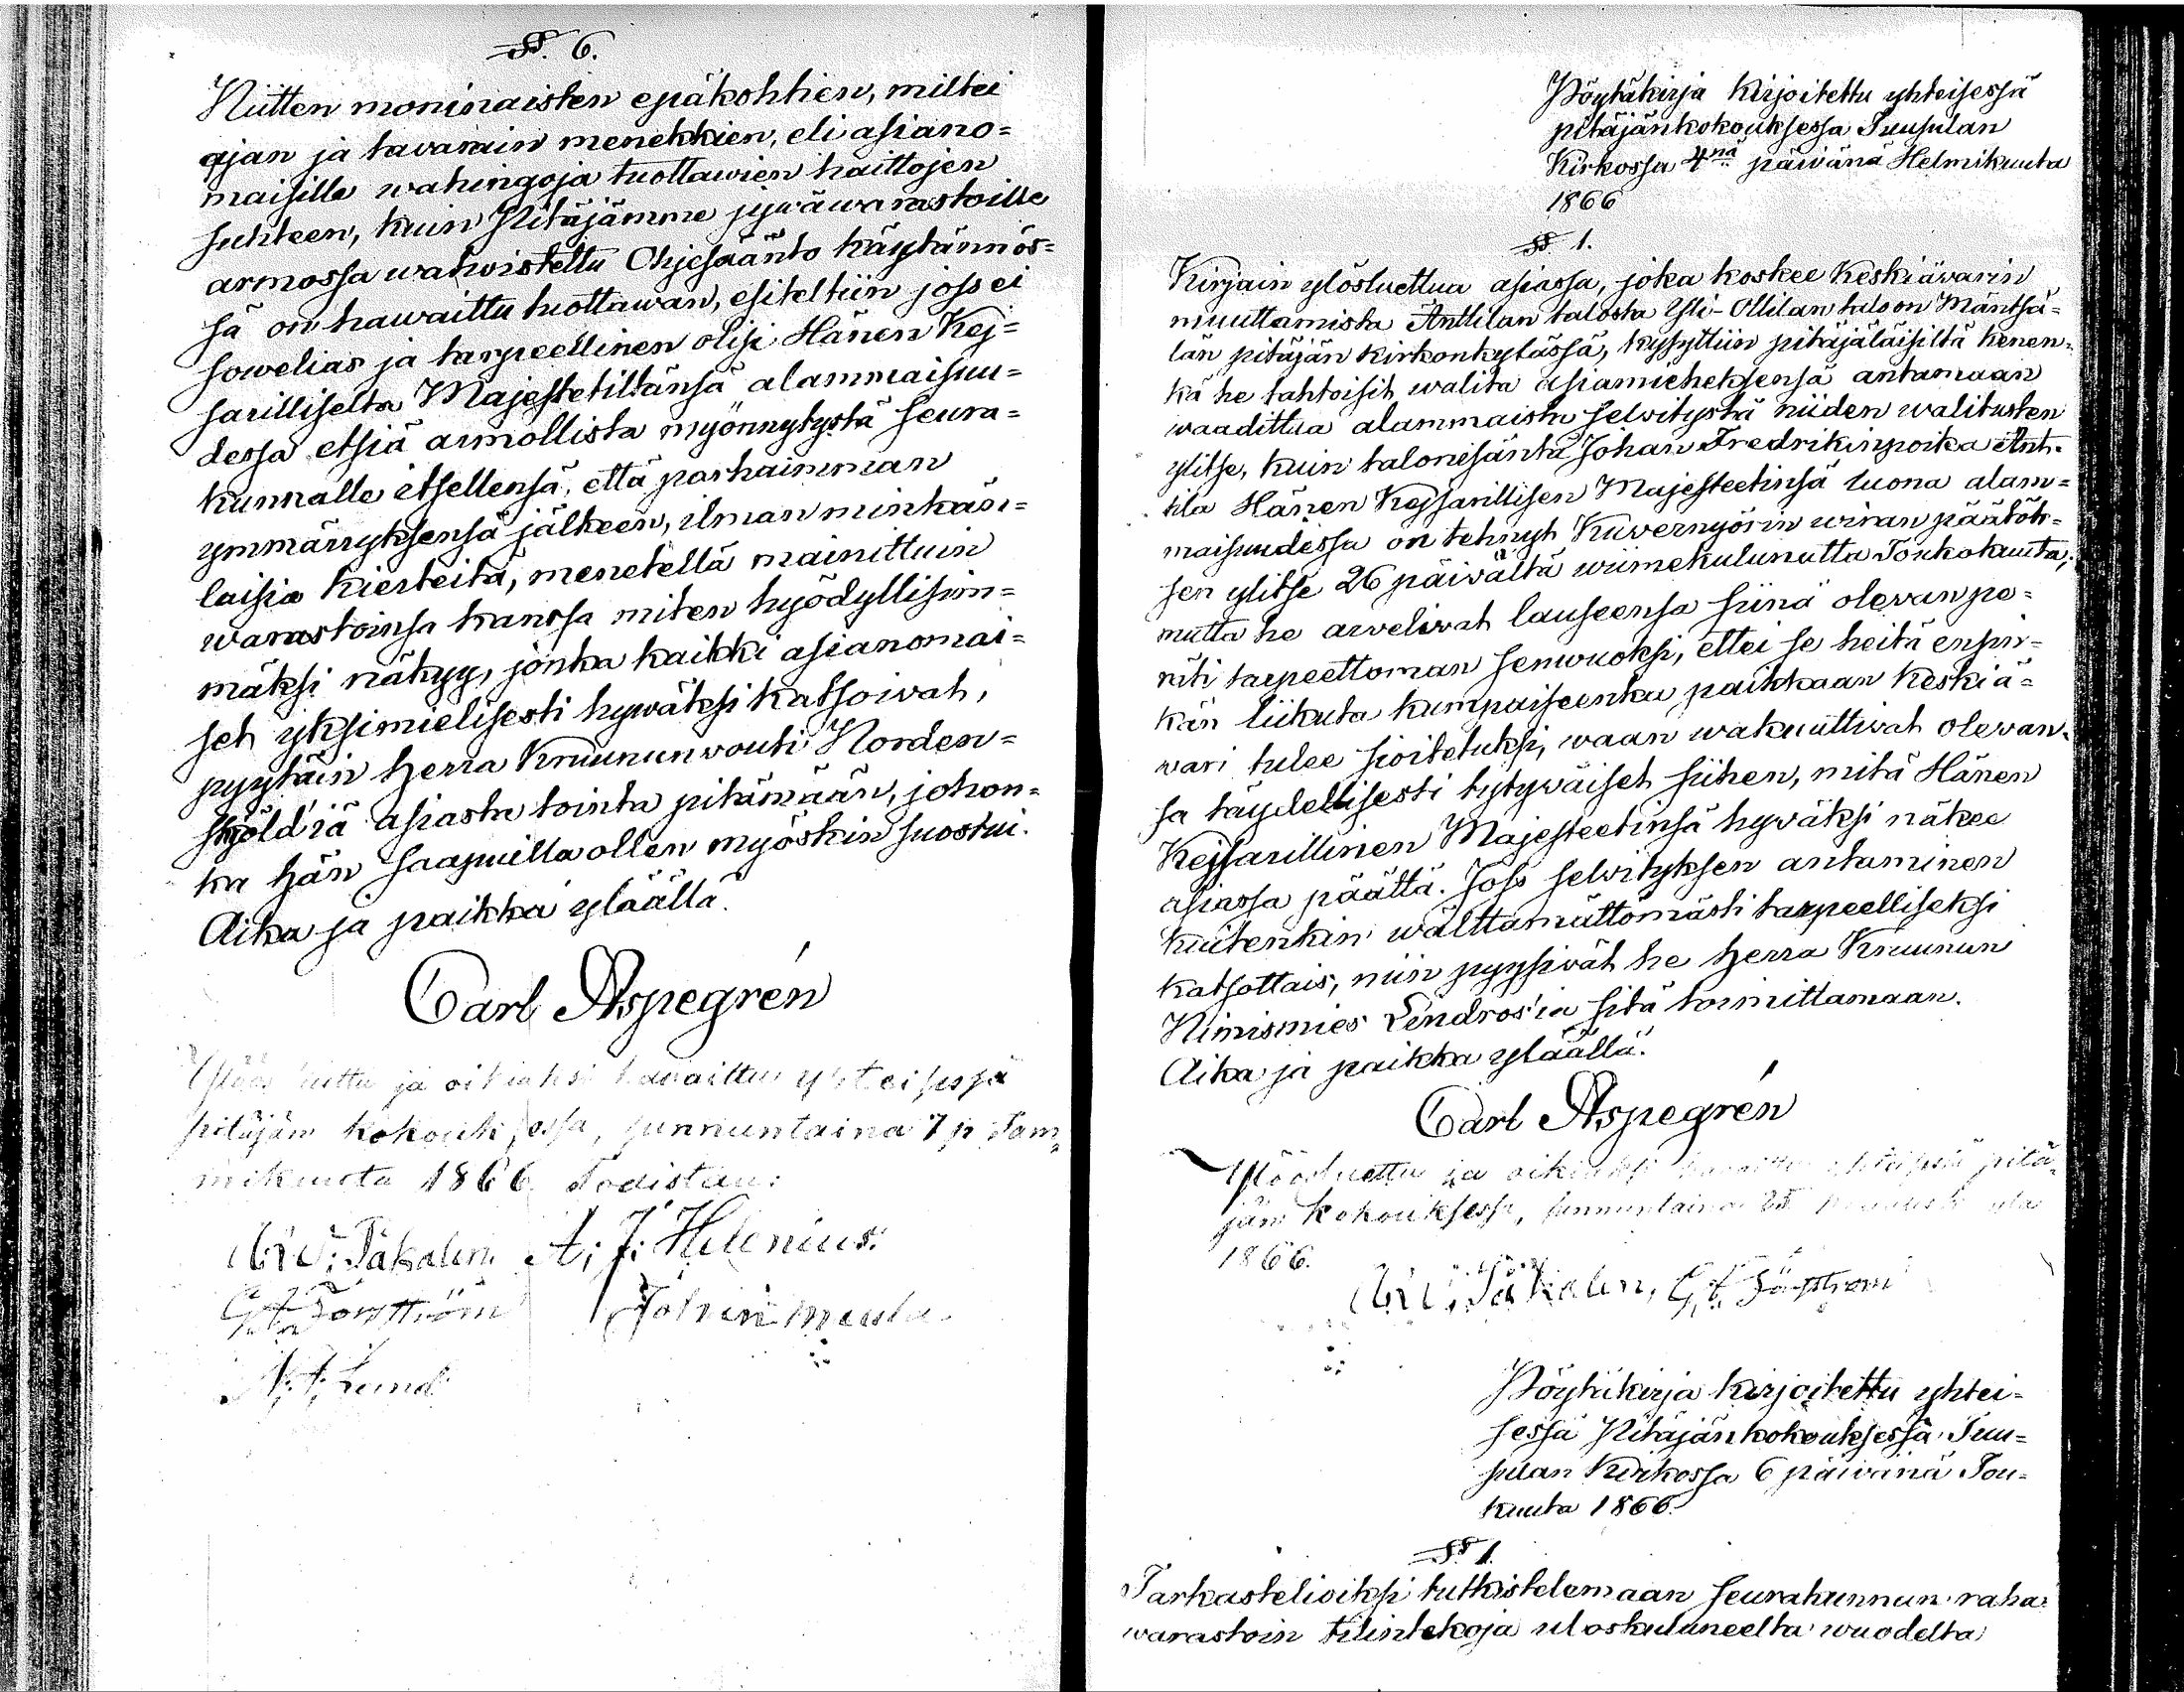 §. 6.
Niitten moninaisten epäkohtien, miltei
ajan ja tavarain menekkien, eli asiano=
maisille wahingoja tuottawien haittojen
suhteen, kuin Pitäjämme jywäwarastoille
armossa wahwistettu Ohjesääntö käytännös=
sä on hawaittu tuottawan, esiteltiin joss ei
sowelias ja tarpeellinen olisi Hänen Kej=
sarilliselta Majestetiltänsä alammaisuu=
dessa etsiä armollista myönnytystä seura=
kunnalle itsellensä, että parhaimman
ymmärryksensä jälkeen, ilman minkään=
laisia kierteitä, menetellä mainittuin
warastoinsa kanssa miten hyödyllisim=
mäksi näkyy, jonka kaikki asianomai=
set yksimielisesti hywäksi katsoivat,
pyytäin Herra Kruununwouti Norden=
sköld'iä asiasta tointa pitämään, johon=
ka hän saapuilla ollen myöskin suostui.
Aika ja paikka ylläällä.
Carl Aspegrén
Ylösluettu ja oikiaksi havaittu yhteisessä
pitäjäm kokouksessa, sunnuntaina 7 p Tam=
mikuuta 1866 Todistaa:
Tåkalen A: J: Helenius.
G A Forsström
Lund
Pöytäkirja kirjoitettu yhteisessä
pitäjänkokouksessa Tuusulan
Kirkossa 4nä päiwänä Helmikuuta
1866
§ 1.
Kirjain ylösluettua asiassa, joka koskee Keskiäwarin
muuttamista Anttilan talosta Yli-Ollilan taloon Mäntsä=
län pitäjän kirkonkylässä, kysyttiin pitäjäläisiltä kenen=
kä he tahtoisit walita asiamieheksensä antamaan
waadittua alammaista selwitystä niiden walitusten
ylitse, kuin talonisäntä Johan Fredrikinpoika Ant=
tila Hänen Kejsarillisen Majesteetinsä luona alam=
maisuudessa on tehnyt Kuvernyörin wiran päätök=
sen ylitse 26 päivältä wiimekulunutta Toukokuuta;
mutta he arvelivat lauseensa siinä olevan pe=
räti tarpeettoman senwuoksi, ettei se heitä enpin=
kän liikuta kumpaiseenka paikkaan Keskiä=
wari tulee sioitetuksi, waan wakuuttivat olewan=
sa täydellisesti tytywäiset siihen, mitä Hänen
Kejsarillinen Majesteetinsä hywäksi näkee
asiassa päättä. Joss selvityksen antaminen
kuitenkin wälttamättömästi tarpeelliseksi
katsottais, niin pyysivät he Herra Kruunun
Nimismies Lindros'ia sitä toimittamaan.
Aika ja paikka ylläällä.
Carl Aspegrén
Ylösluettu ja oikiaksi havaittu yhteisessä pitä=
jäm kokouksessa, sunnuntaina 25
1866.
Tåkalen, G A Forsström
Pöytäkirja kirjoitettu yhtei=
sessä Pitäjänkokouksessa Tuu=
sulan Kirkossa 6 päivänä Tou=
kuuta 1866.
§ 1.
Tarkastelioiksi tutkistelemaan seurakunnan raha=
warastoin tilintekoja uloskuluneelta wuodelta